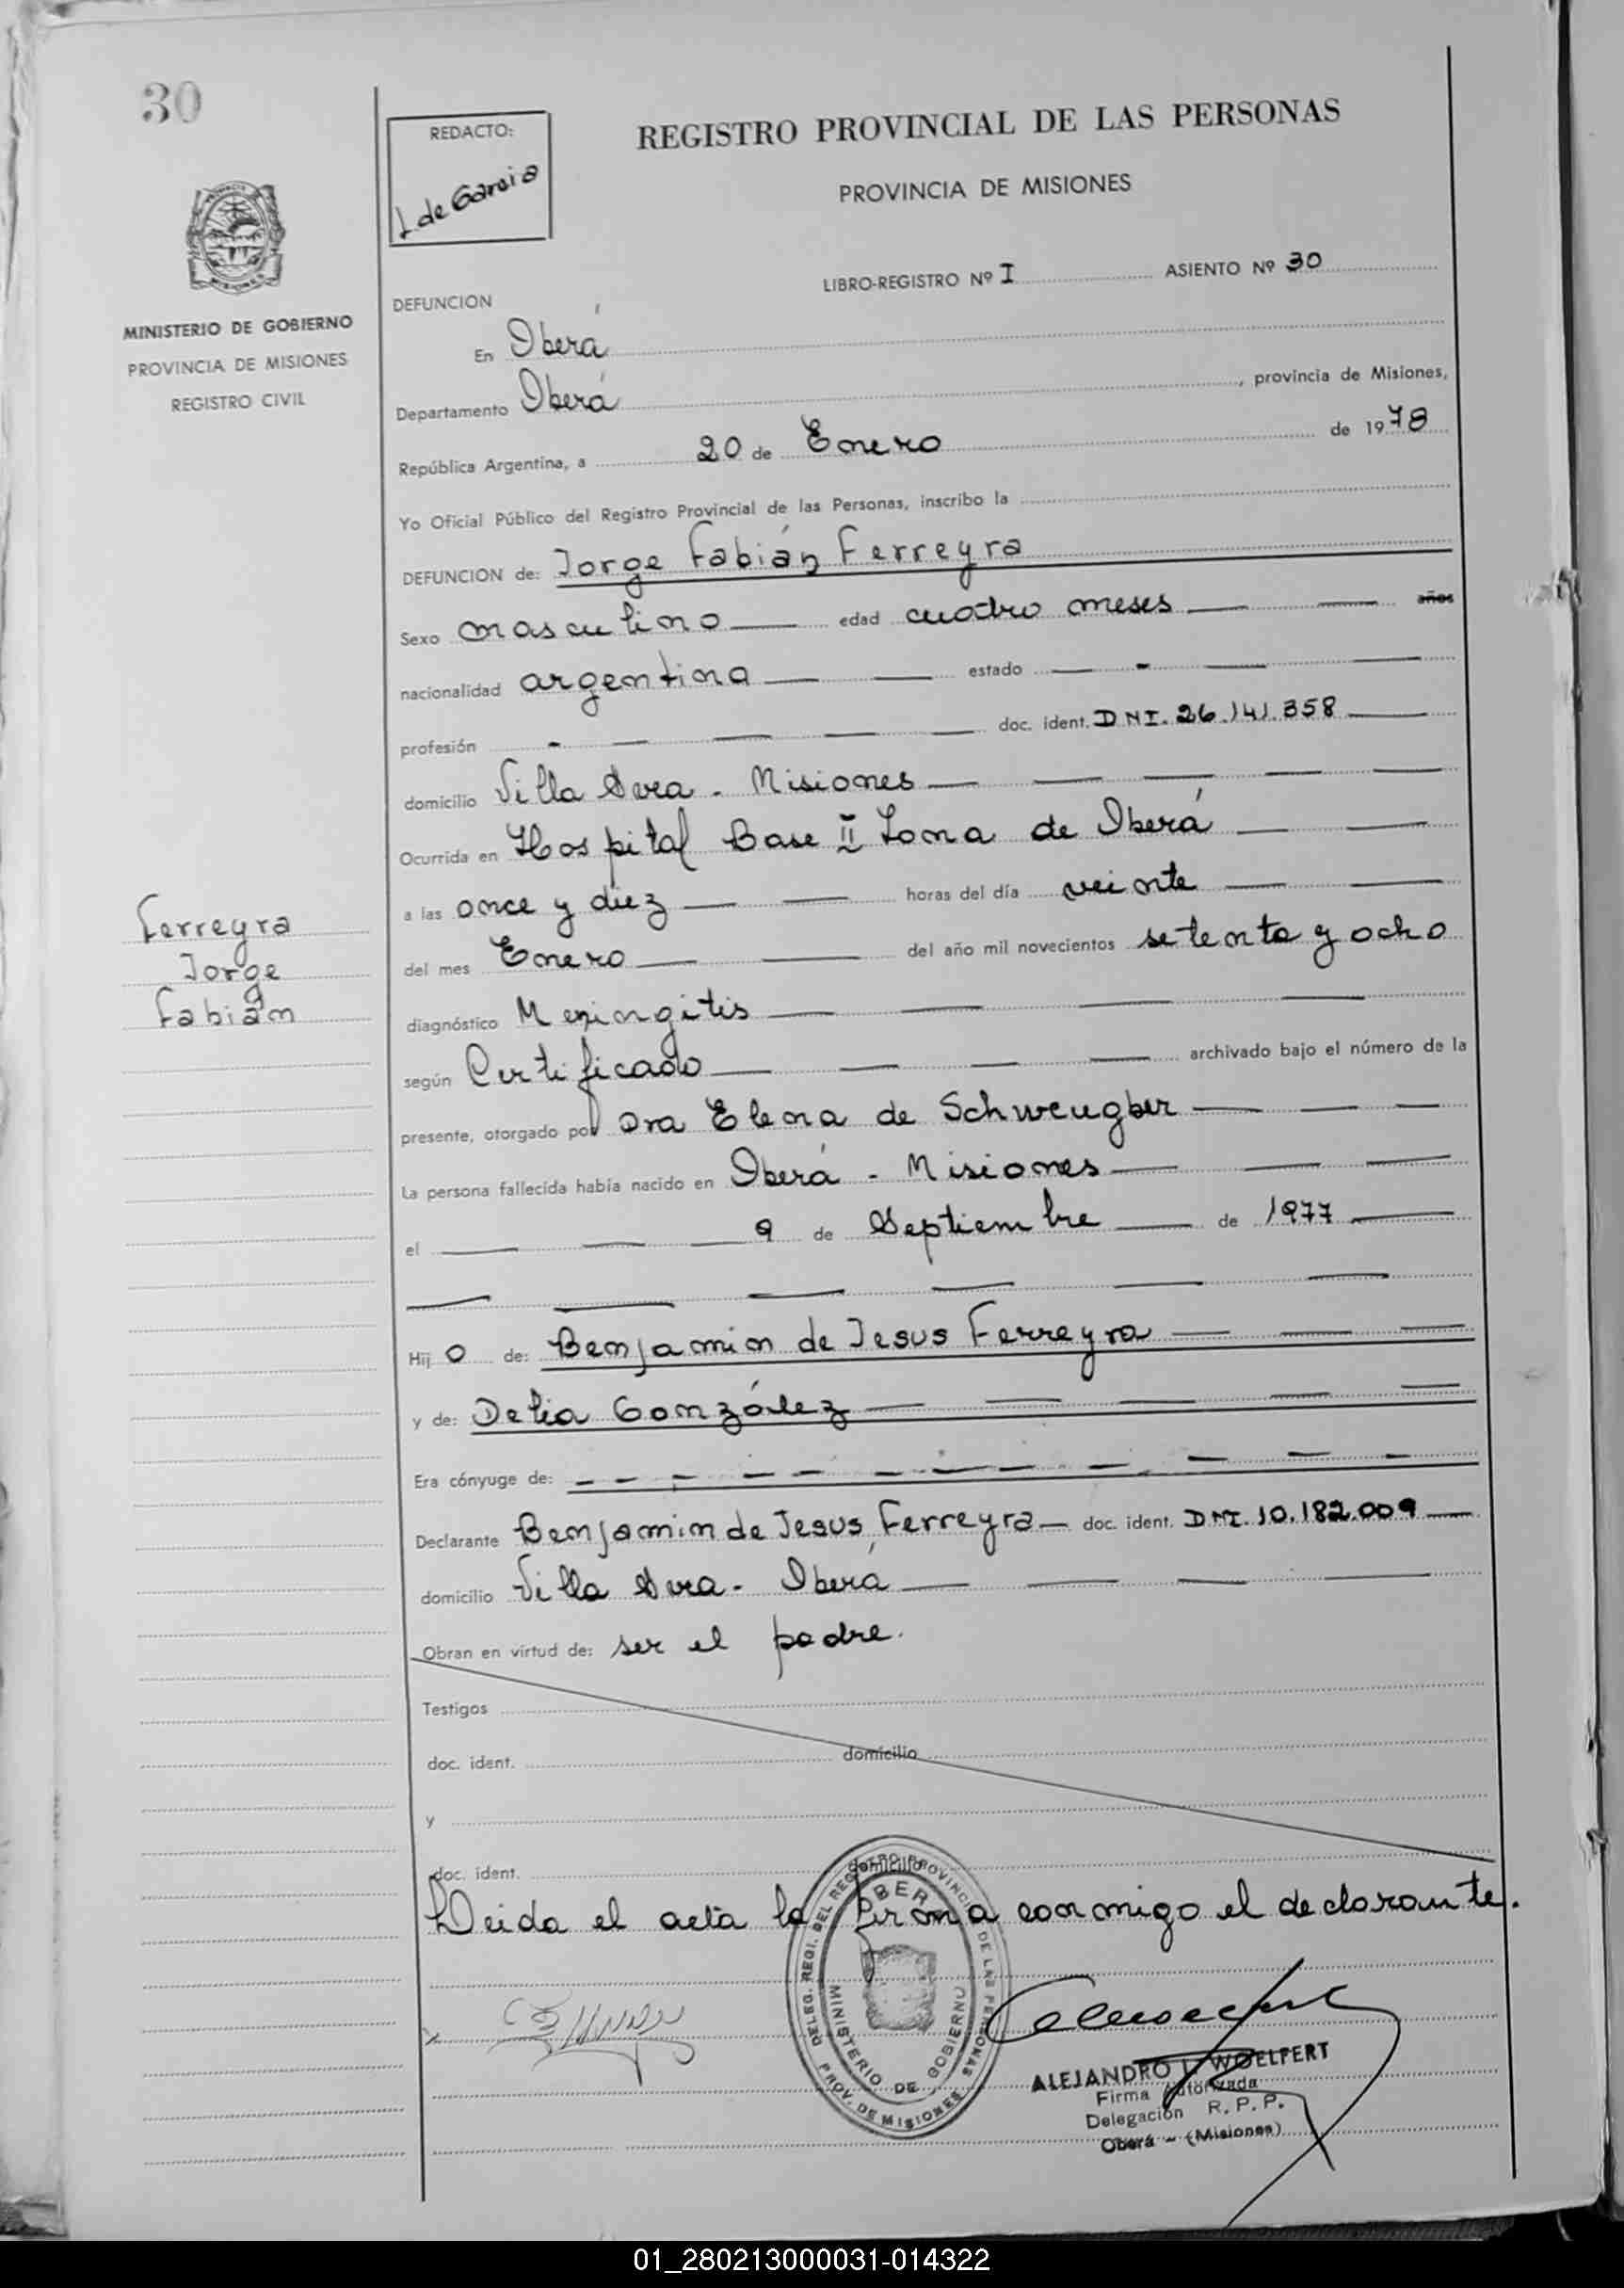 30
REDACTO:
L de Garcia
REGISTRO PROVINCIAL DE LAS PERSONAS
PROVINCIA DE MISIONES
LIBRO-REGISTRO Nº I ASIENTO Nº 30
MINISTERIO DE GOBIERNO
PROVINCIA DE MISIONES
REGISTRO CIVIL
DEFUNCION
En Oberá
Departamento Oberá, provincia de Misiones,
República Argentina, a 20 de Enero de 1978
Yo Oficial Público del Registro Provincial de las Personas, inscribo la
DEFUNCION de: Jorge Fabián Ferreyra
Sexo masculino edad cuatro meses años
nacionalidad argentina estado
profesión doc. ident. DNI. 26.141.358
domicilio Villa Svea - Misiones
Ocurrida en Hospital Base II Zona de Oberá
a las once y diez horas del día veinte
del mes Enero del año mil novecientos setenta y ocho
diagnóstico Meningitis
según Certificado archivado bajo el número de la
presente, otorgado por Dra Elena de Schweugber
La persona fallecida había nacido en Oberá - Misiones
el 9 de Septiembre de 1977
Hijo de: Benjamin de Jesus Ferreyra
y de: Delia González
Era cónyuge de:
Declarante Benjamin de Jesus Ferreyra doc. ident. DNI. 10.182.009
domicilio Villa Svea - Oberá
Obran en virtud de: ser el padre.
Testigos
doc. ident. domicilio
y
doc. ident. domicilio
Leida el acta la firma conmigo el declarante.
Ferreyra
Jorge
Fabián
DELEG. REGI. DEL REGISTRO PROVINCIAL DE LAS PERSONAS
OBERA
MINISTERIO DE GOBIERNO
PROV. DE MISIONES
ALEJANDRO L. WOELFERT
Firma Autorizada
Delegación R. P. P.
Oberá - (Misiones)
01_280213000031-014322